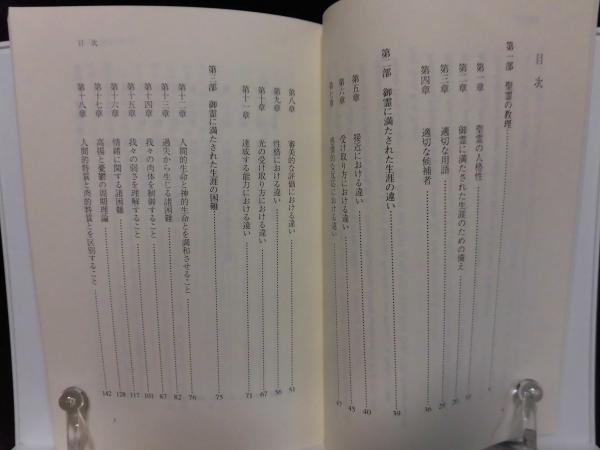 目次
第一部 聖霊の教理
第一章 聖霊の人格性
第二章 御霊に満たされた生涯のための備え
第三章 適切な用語
第四章 適切な候補者 36
第二部 御霊に満たされた生涯の違い 39
第五章 接近における違い 40
第六章 受け取り方における違い 45
第七章
目次
第八章 審美的な評価における違い 51
第九章 性格における違い 56
第十章 光の受け取り方における違い 67
第十一章 達成する能力における違い 71
第三部 御霊に満たされた生涯の困難 75
第十二章 人間的生命と神的生命とを調和させること 76
第十三章 過失から生じる諸困難 82
第十四章 我々の肉体を制御すること 87
第十五章 我々の弱さを理解すること 101
第十六章 情緒に関する諸困難 117
第十七章 高揚と憂鬱の周期理論 128
第十八章 人間的特質と肉的特質とを区別すること 142